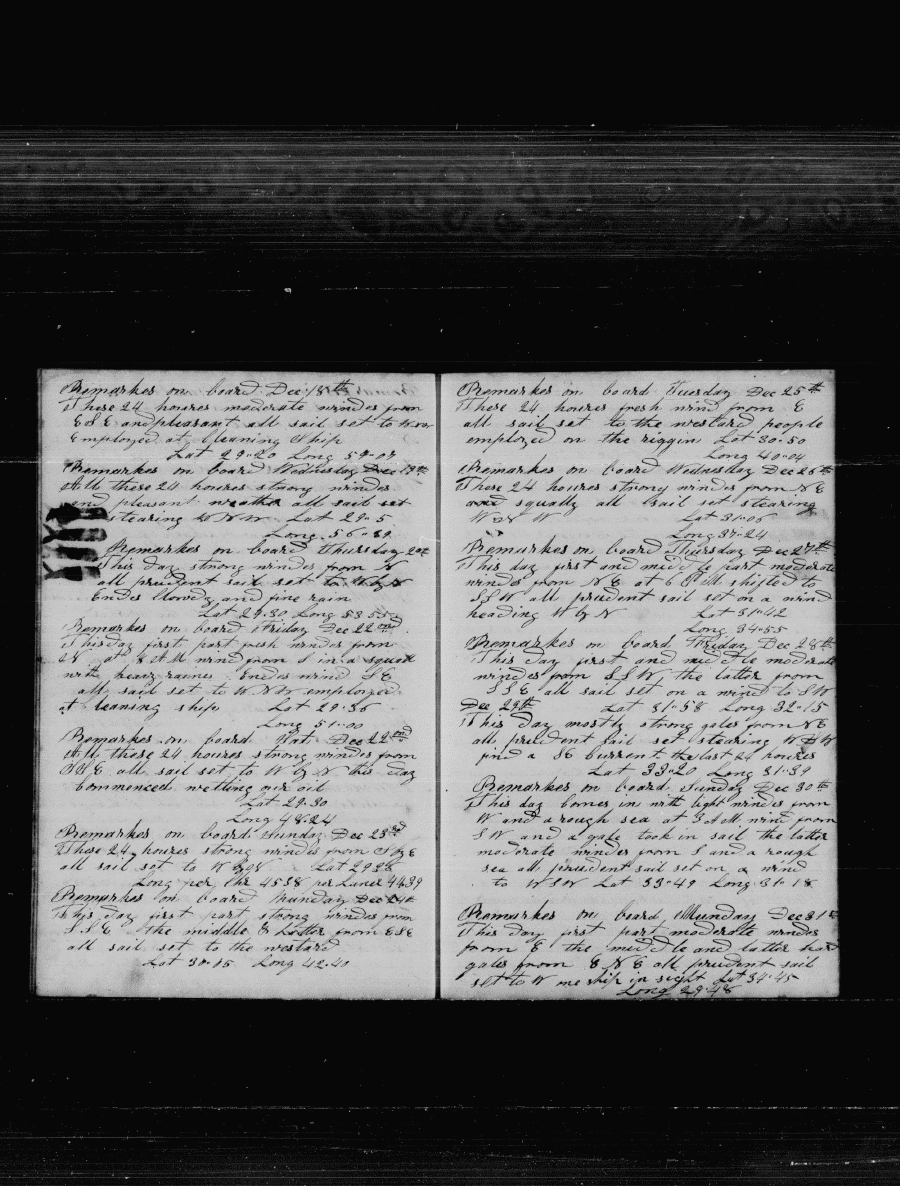 Remarkes on board Dec 18th
These 24 houres moderate windes from
ESE and pleasant all sail set to
Employed at Cleaning Ship
Lat 29-20 Long 59-07
Remarkes on board Wednesday Dec 19th
All these 24 houres strong windes
and pleasant weather all sail set
stearing WNW Lat 29-5
Long 56-39
Remarkes on board Thursday 20th
This day strong windes from N
all prudent sail set to W by N
Endes Clowdy and fine rain
Lat 29-30 Long 53-5
Remarkes on board Friday Dec 22nd
This day first part fresh windes from
at 8 AM wind from S in a squall
with heavy raines Endes wind SE
all sail set to WNW employed
at leaning ship Lat 29-36
Long 51-00
Remarkes on board Sat Dec 22nd
All these 24 houres strong windes from
SSE all sail set to W by N this day
Commenced wetling our oil
Lat 29-30
Long 48-24
Remarkes on board Sunday Dec 23rd
These 24 houres strong windes from S by E
all sail set to W by N Lat 29 28
Long per Chr 45 38 per Luner 44 39
Remarkes on board Munday Dec 24th
This day first part strong windes from
SSE the middle & Latter from ESE
all sail set to the westard
Lat 30-15 Long 42-40
Remarkes on board Tuesday Dec 25th
These 24 houres fresh wind from E
all sail set to the westard people
employed on the riggin Lat 30-50
Long 40-04
Remarkes on board Wednesday Dec 26th
These 24 houres strong windes from NE
and squally all sail set stearing
W by N Lat 31-06
Long 37-24
Remarkes on board Thursday Dec 27th
This day first and middle part moderate
windes from NE at 6 PM shifted to
SSW all prudent sail set on a wind
heading W by N Lat 31-42
Long 34-55
Remarkes on board Friday Dec 28th
This day first and middle moderate
windes from SSW, the latter from
SSE all sail set on a wind to SW
Dec 29th Lat 31-58 Long 32-15
This day mostly strong gales from NE
all prudent sail set stearing W by N
find a SE Current the last 24 houres
Lat 33-20 Long 31-39
Remarkes on board Sunday Dec 30th
This day Comes in with light windes from
W and a rough sea at 3 AM wind from
SW and a gale took in sail the latter
moderate windes from S and a rough
sea all prudent sail set on a wind
to WSW Lat 33-49 Long 31-18
Remarkes on board Munday Dec 31st
This day first part moderate windes
from E the middle and latter hard
gales from ENE all prudent sail
set to W one ship in sight Lat 34-45
Long 29-48